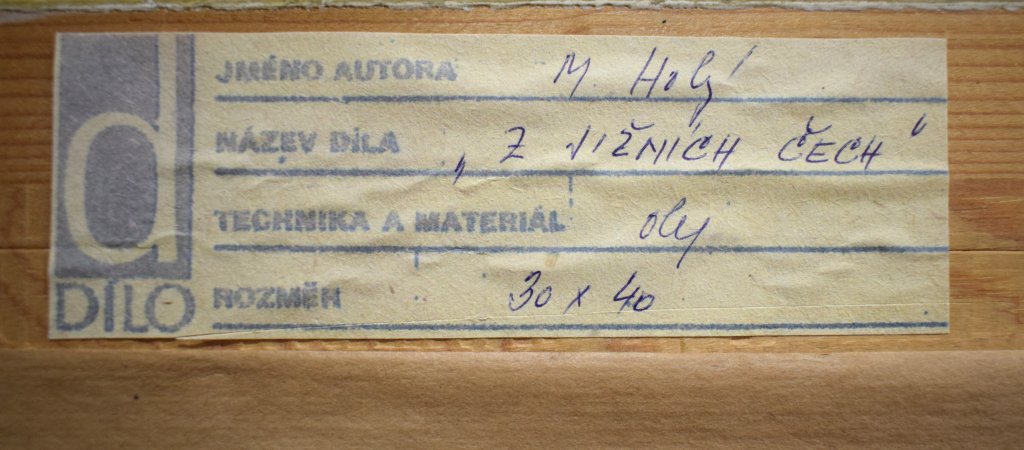 JMÉNO AUTORA M. Holý
NÁZEV DÍLA „Z JIŽNÍCH ČECH“
TECHNIKA A MATERIÁL olej
ROZMĚR 30 x 40
d
DÍLO